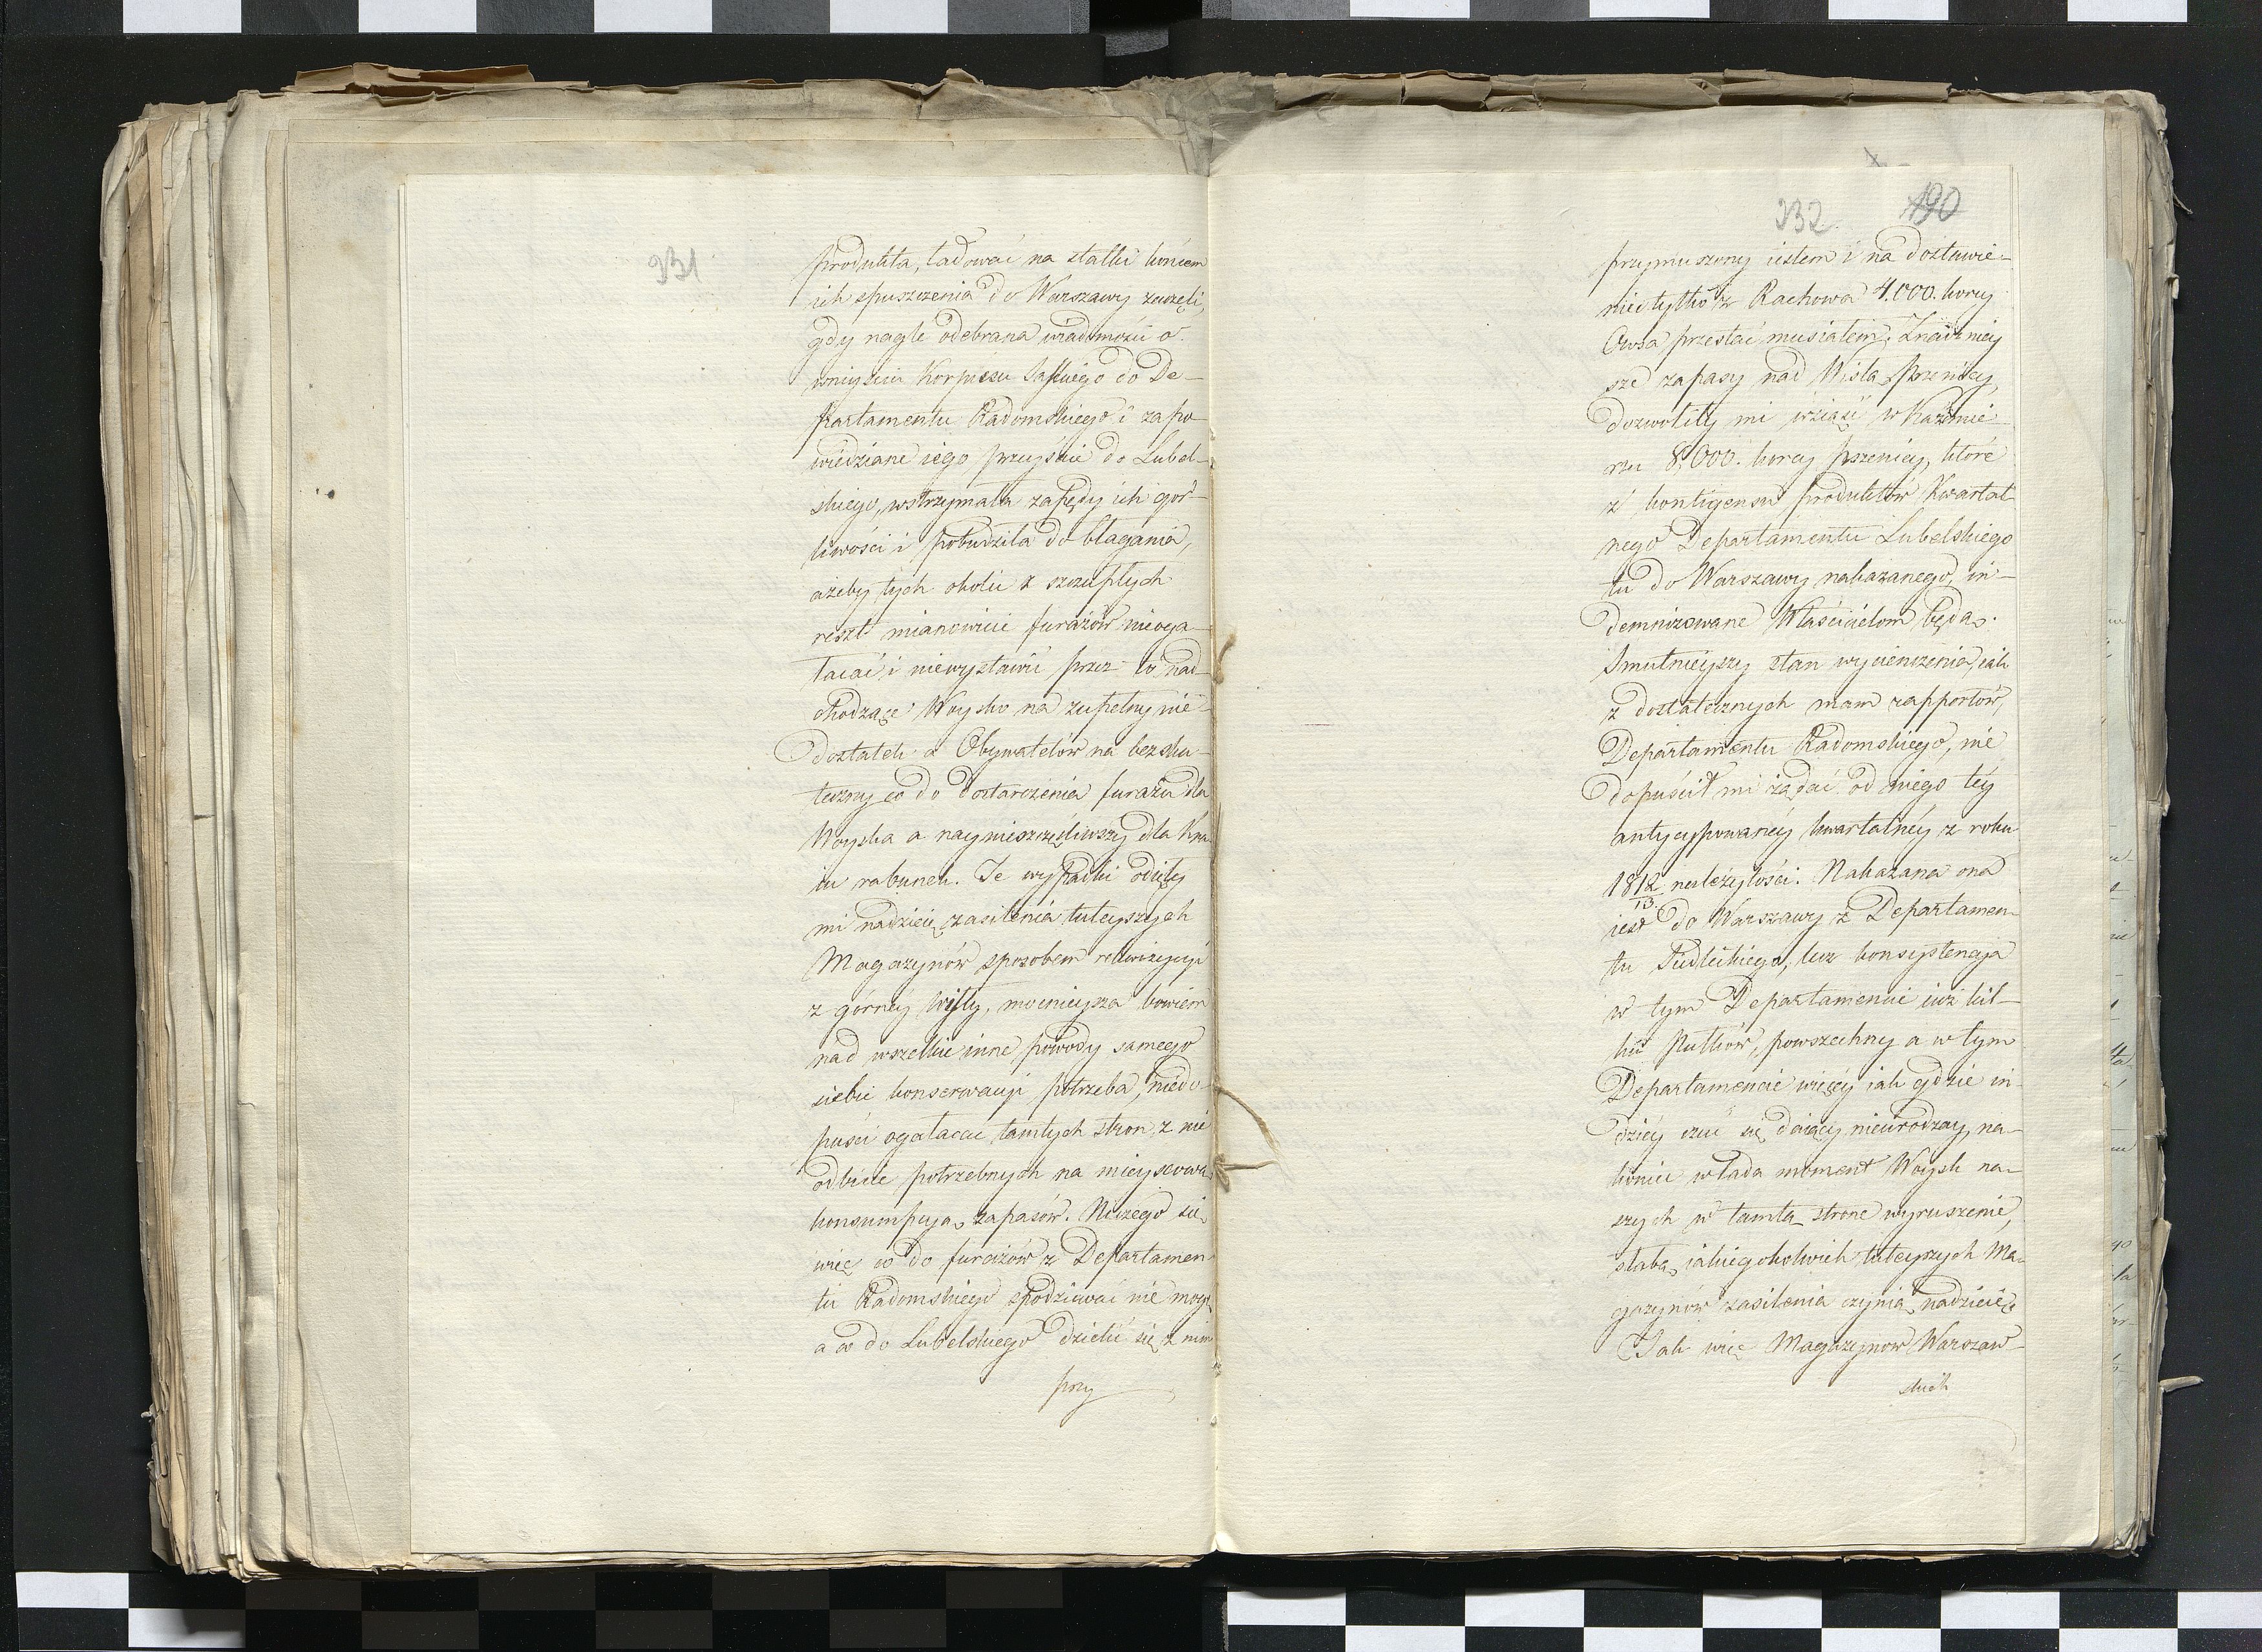 231
produkta, ładować na statki końcem
ich spuszczenia do Warszawy zaczęli,
gdy nagle odebrana wiadomość o
wniyściu Korpusu Saskiego do De-
partamentu Radomskiego i zapo-
wiedziane iego przeyście do Lubel-
skiego, wstrzymała zapędy ich gor-
liwości i pobudziła do błagania,
ażeby tych okolic z szczupłych
reszt mianowicie furażów nieoga-
łacać i niewystawić przez to nad-
chodzące Woysko na zupełny nie-
dostatek a Obywatelów na bezsku-
teczny co do dostarczenia furażu dla
Woyska a naynieszczęśliwszy dla Kra-
iu rabunek. Te wypadki odięły
mi nadzieię zasilenia tuteyszych
Magazynów sposobem rekwizycyi
z górnéy Wisły, mocnieysza bowiem
nad wszelkie inne powody samego
siebie konserwacyi potrzeba, niedo-
puści ogałacać tamtych stron z nie
odbicie potrzebnych na mieyscową
konsumpcyą zapasów. Niczego się
więc co do furażów z Departamen-
tu Radomskiego spodziewać nie mogę
a co do Lubelskiego dzielić się z nim
przy
232 190
przymuszony iestem i na dostawie-
nie tylko z Rachowa 4.000. korcy
Owsa przestać musiałem. Znaczniey
sze zapasy nad Wisłą Pszenicy,
dozwoliły mi wziąść w Kaźmie-
rzu 8,000. korcy pszenicy, które
z kontigensu produktów Kwartal-
nego Departamentu Lubelskiego
tu do Warszawy nakazanego, in-
demnizowane Właścicielom będą.
Smutnieyszy stan wycieńczenia, iak
z dostatecznych mam rapportów,
Departamentu Radomskiego, nie
dopuścił mi żądać od niego téy
antycypowanéy kwartalnéy z roku
1812/13. należytości. Nakazana ona
iest do Warszawy z Departamen-
tu Siedleckiego, lecz konsystencya
w tym Departamencie iuż kil-
ku Pułków, powszechny a w tym
Departamencie więcéy iak gdzie in-
dziey czuć się daiący nieurodzay, na-
koniec w lada moment Woysk na-
szych w tamtą stronę wyruszenie,
słabą iakiegokolwiek tuteyszych Ma-
gazynów zasilenia czynią nadzieię
Jak więc Magazynów Warszaw-
skich